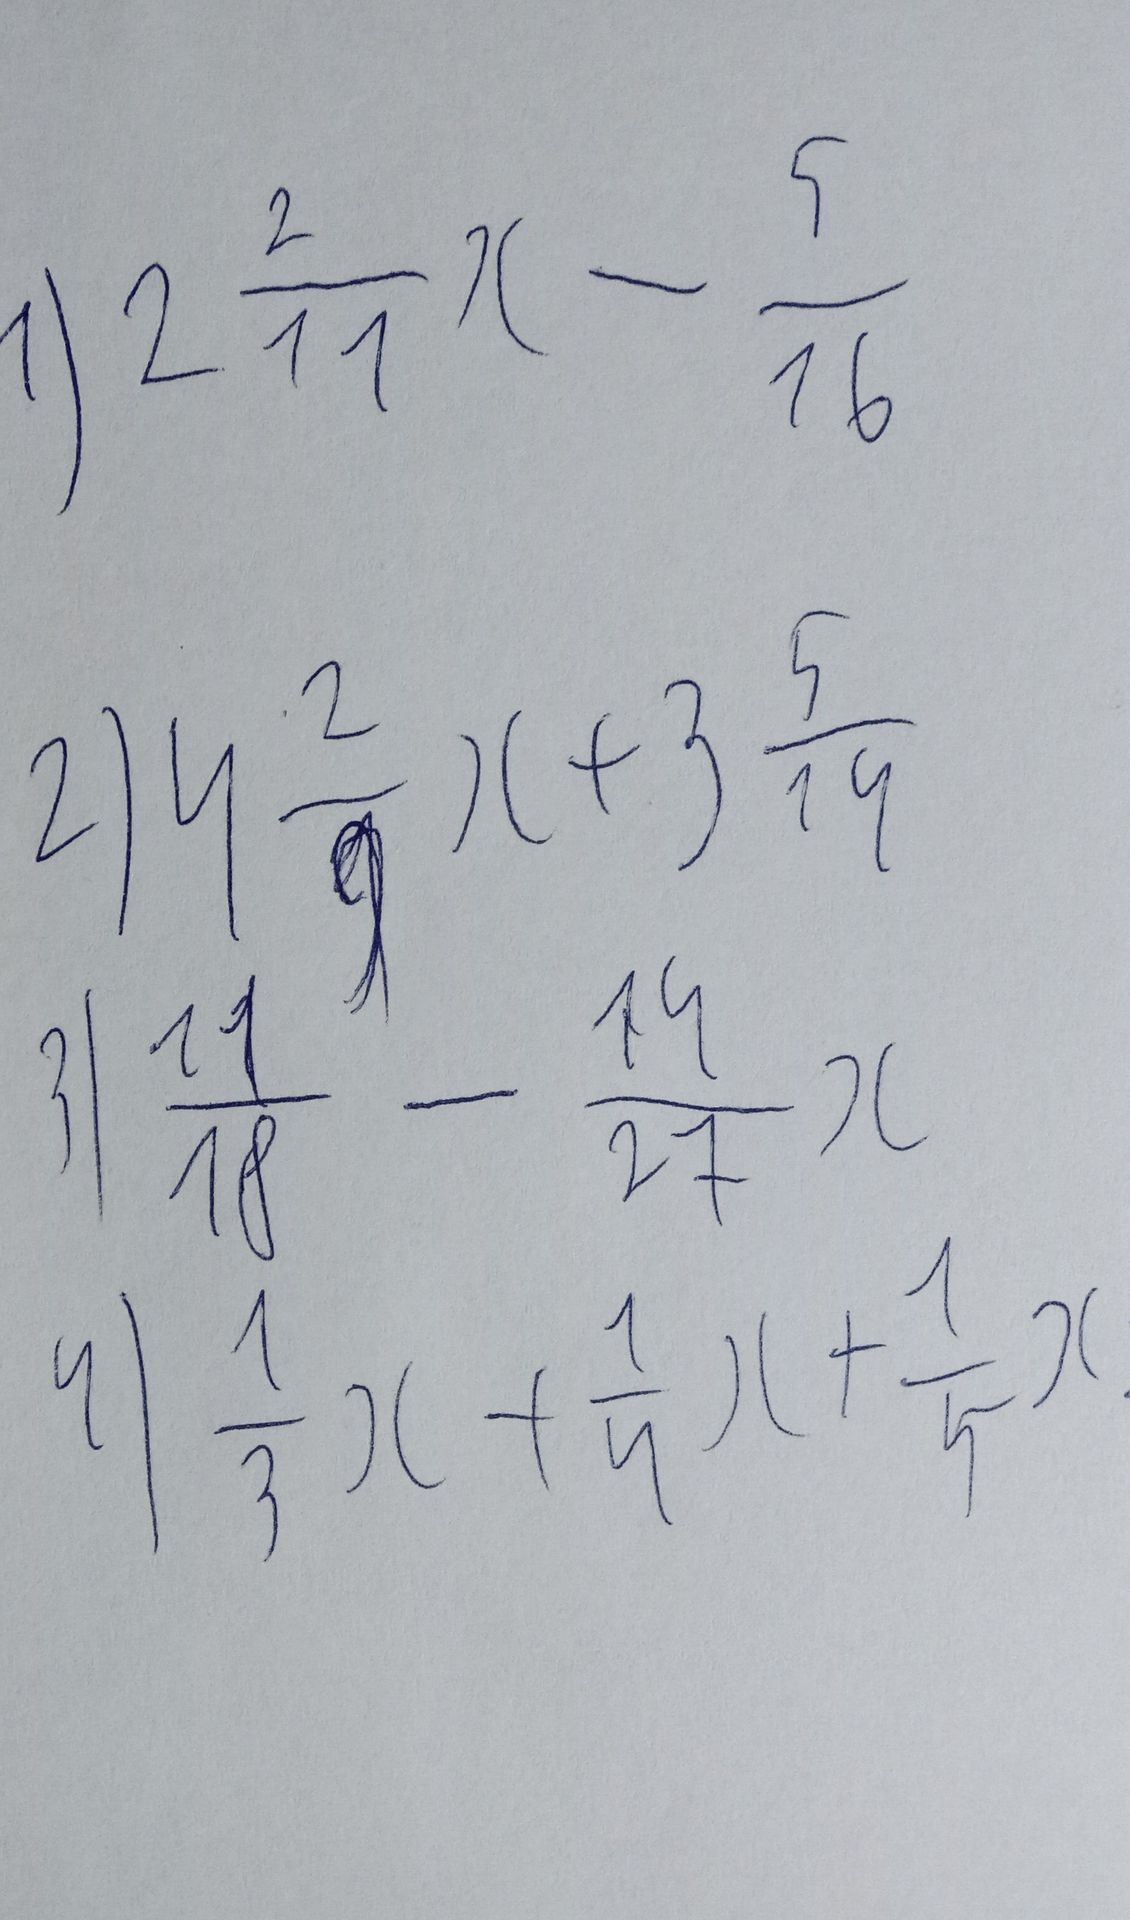 1) 2 2/11 x - 5/16
2) 4 2/9 x + 3 5/14
3) 11/18 - 14/27 x
4) 1/3 x + 1/4 x + 1/5 x